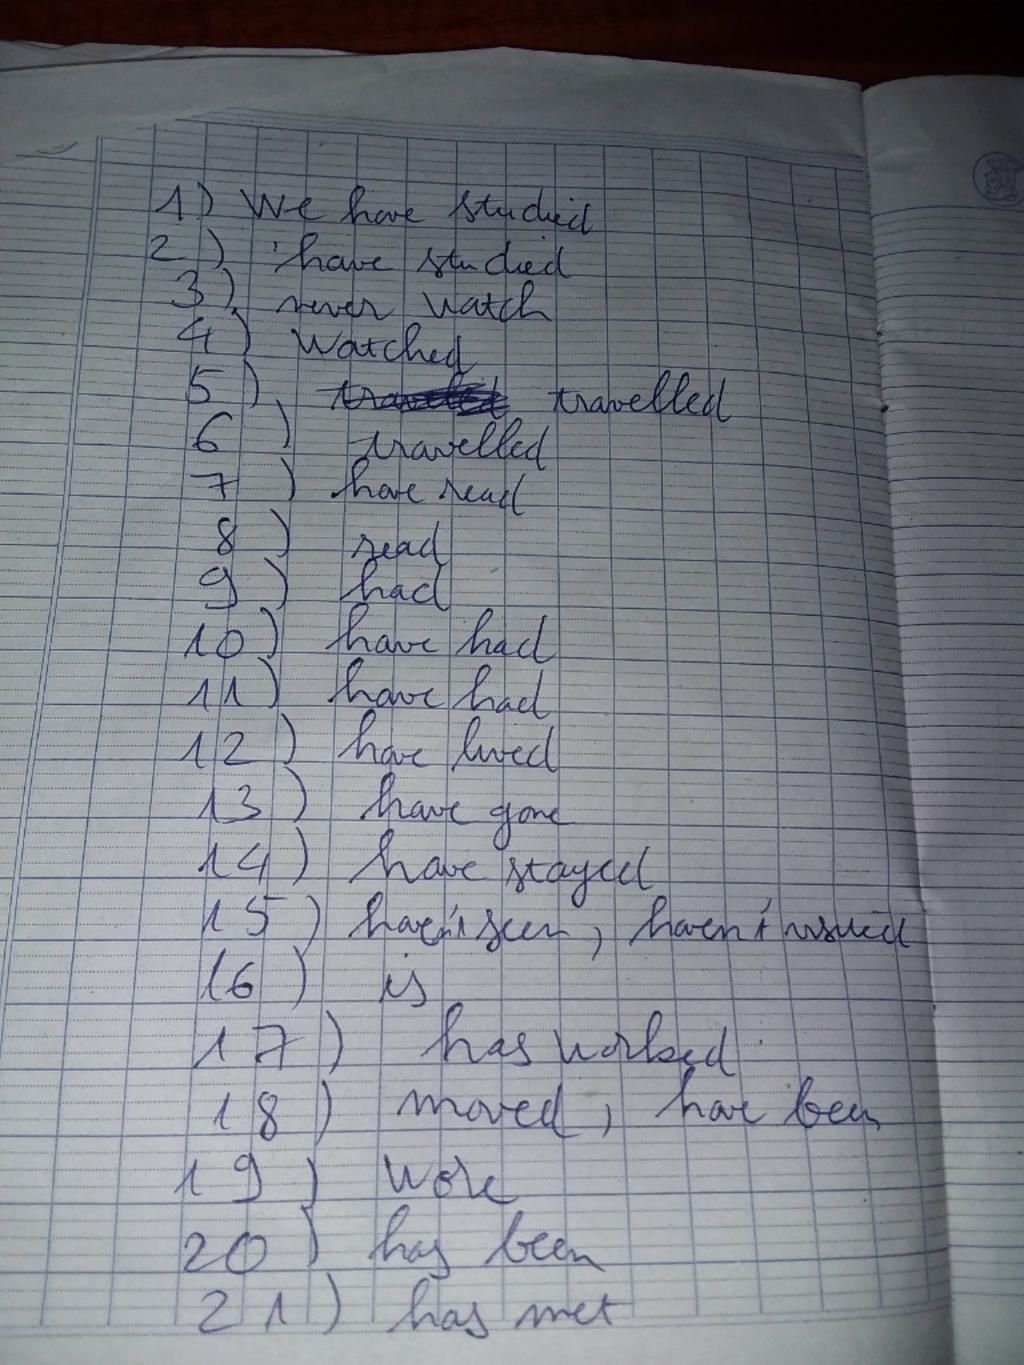 1) We have studied
2) have studied
3) never watch
4) Watched
5) travelled
6) travelled
7) have read
8) read
9) had
10) have had
11) have had
12) have lived
13) have gone
14) have stayed
15) haven't seen, haven't visited
16) is
17) has worked
18) moved, have been
19) Wore
20) has been
21) has met